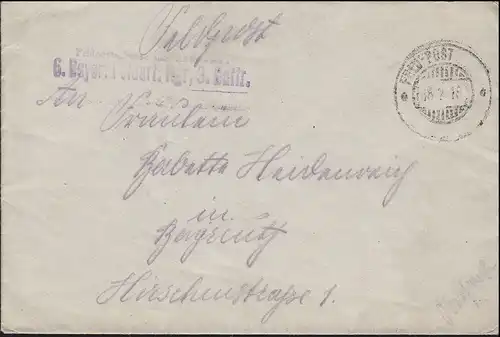 Feldpost
6. Bayer. Feldart. Rgt, 3. Battr.
FELD-POST
An
Fräulein
Babette Heidenreich
in
Bayreuth
Hirschenstraße 1.